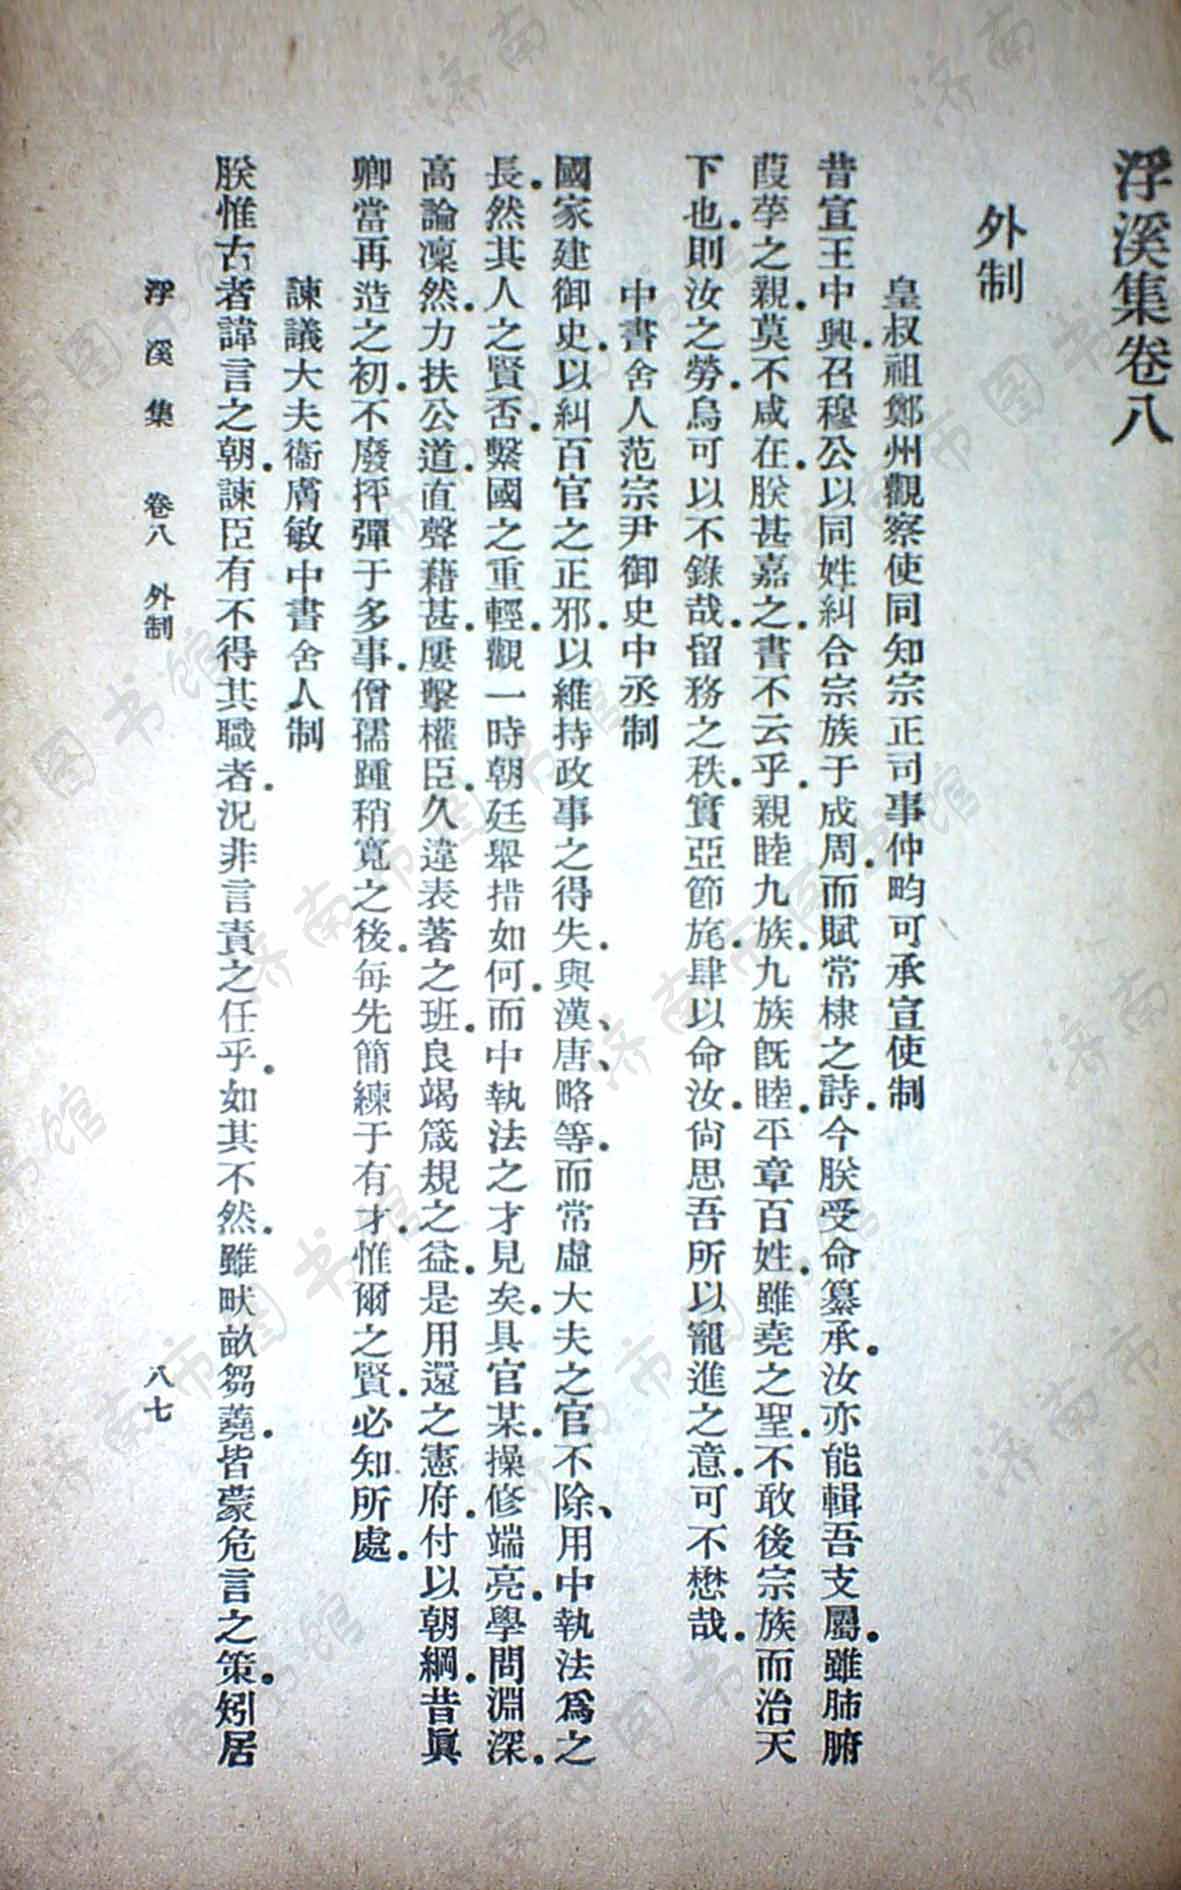 浮溪集卷八
外制
皇叔祖鄭州觀察使同知宗正司事仲畇可承宣使制
昔宣王中興.召穆公以同姓糾合宗族于成周.而賦常棣之詩.今朕受命纂承.汝亦能輯吾支屬.雖肺腑
葭莩之親.莫不咸在.朕甚嘉之.書不云乎.親睦九族.九族旣睦.平章百姓.雖堯之聖.不敢後宗族而治天
下也.則汝之勞.烏可以不錄哉.留務之秩.實亞節旄.肆以命汝.尙思吾所以寵進之意.可不懋哉.
中書舍人范宗尹御史中丞制
國家建御史.以糾百官之正邪.以維持政事之得失.與漢、唐、略等.而常虛大夫之官不除、用中執法爲之
長.然其人之賢否.繫國之重輕.觀一時朝廷舉措如何.而中執法之才見矣.具官某.操修端亮.學問淵深.
高論凜然.力扶公道.直聲藉甚.屢擊權臣.久違表著之班.良竭箴規之益.是用還之憲府.付以朝綱.昔眞
卿當再造之初.不廢抨彈于多事.僧孺踵稍寬之後.每先簡練于有才.惟爾之賢.必知所處.
諫議大夫衞膚敏中書舍人制
朕惟古者諱言之朝.諫臣有不得其職者.況非言責之任乎.如其不然.雖畎畝芻蕘.皆蒙危言之策.矧居
浮溪集 卷八 外制
八七
济南市图书馆